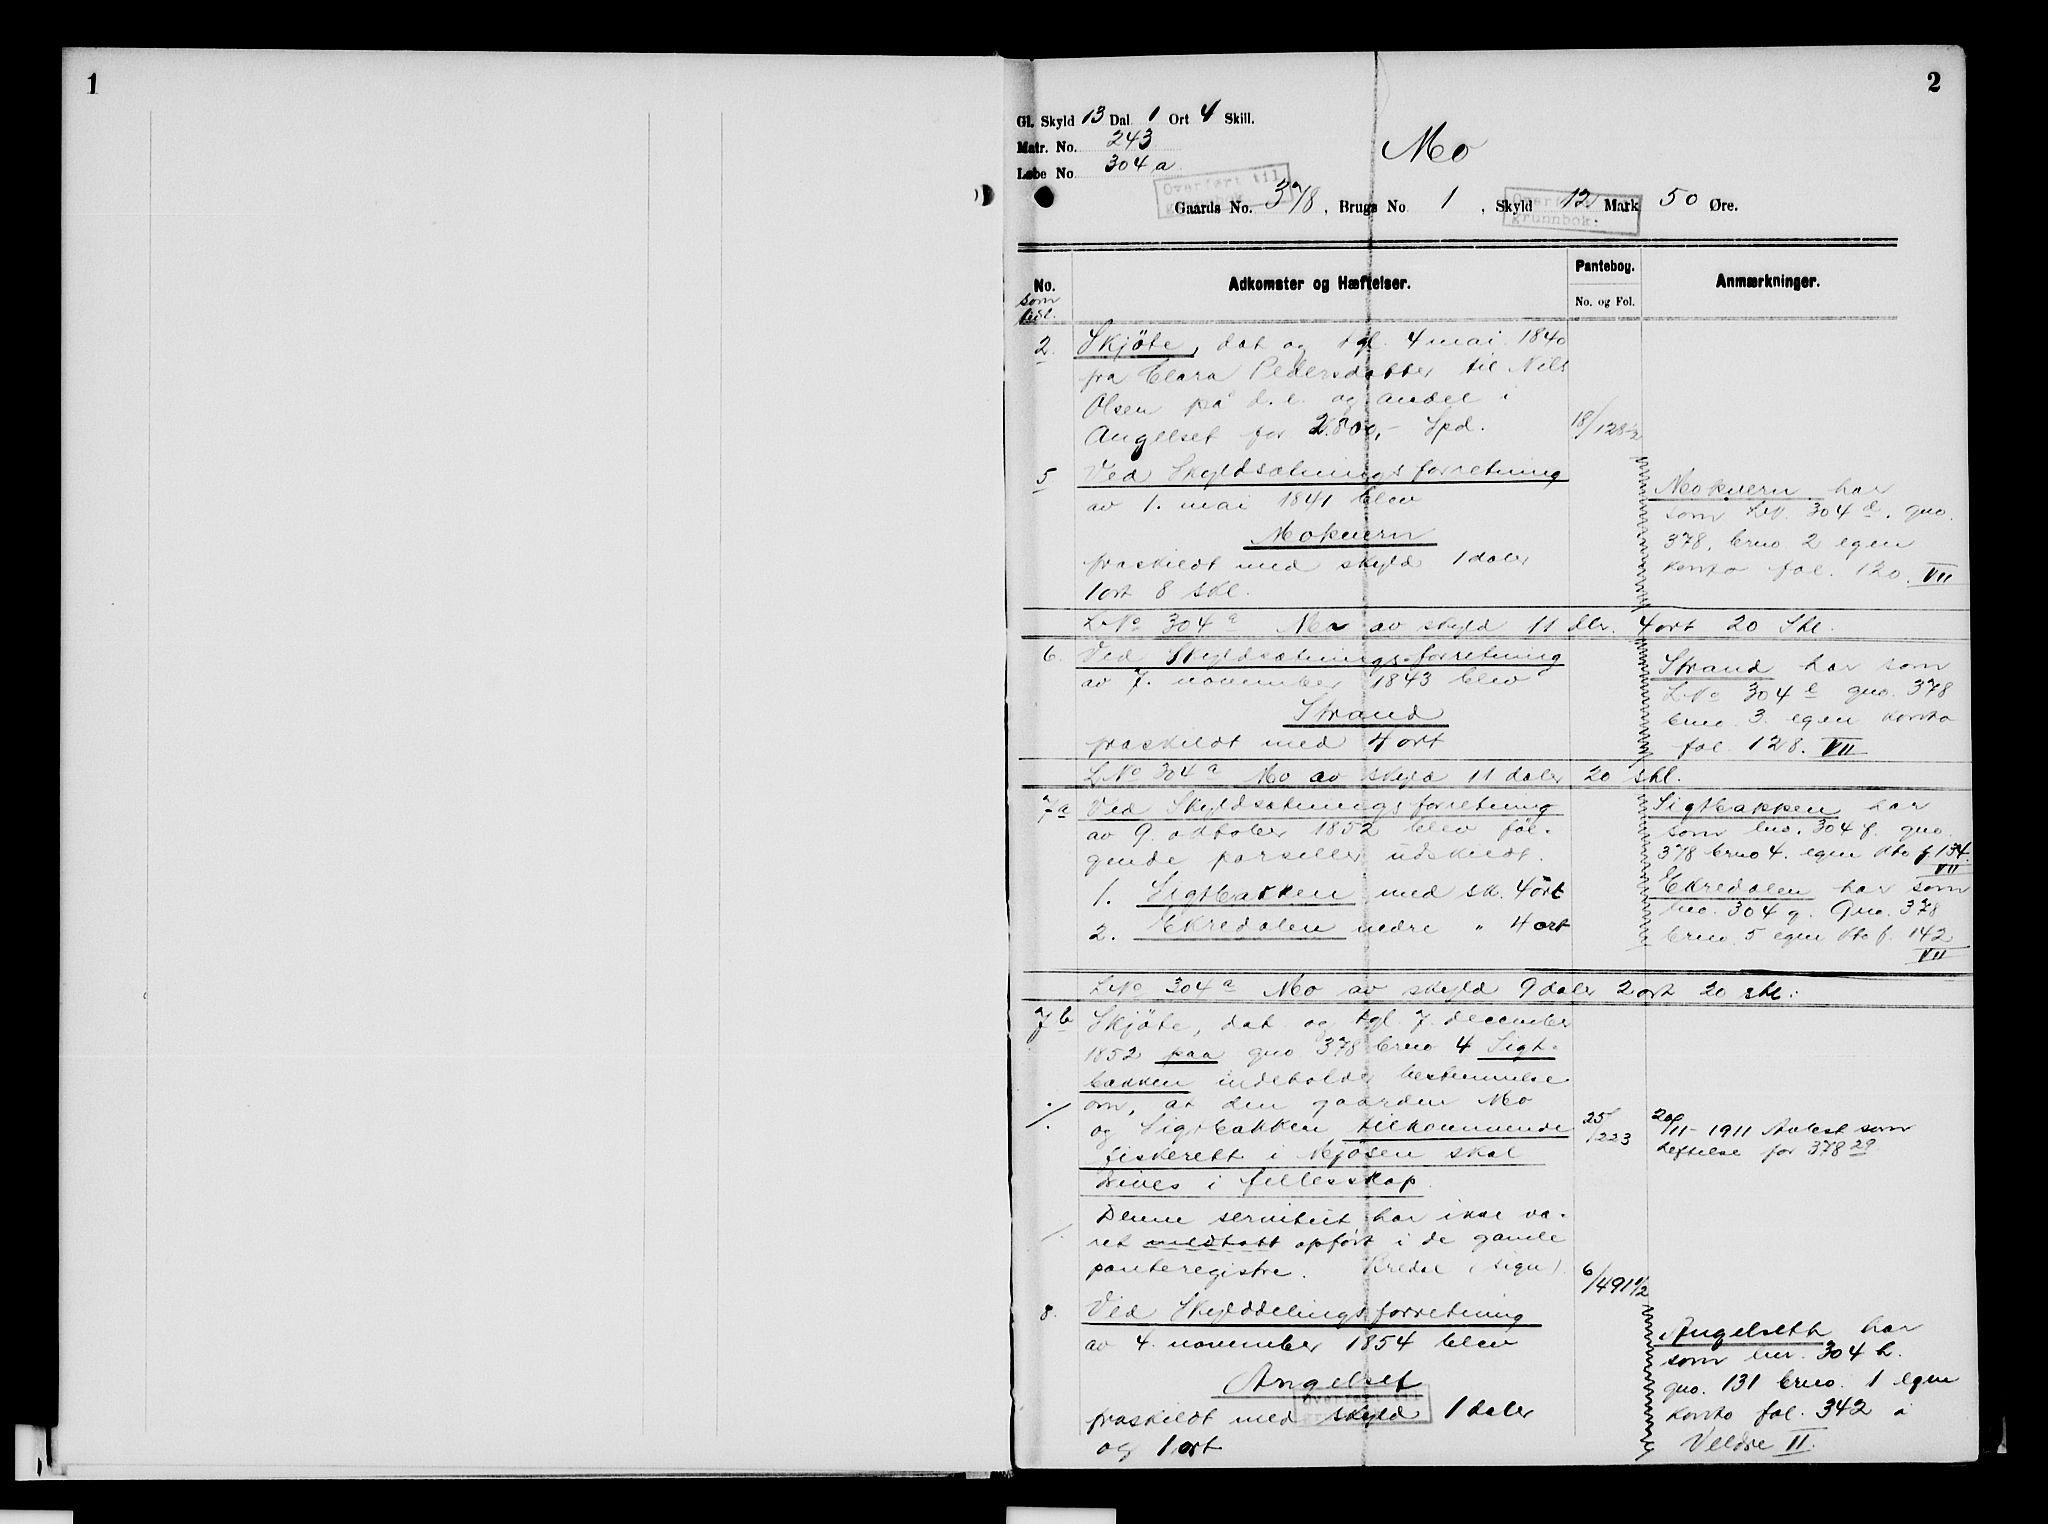 1
2
Gl. Skyld 13 Dal. 1 Ort 4 Skill.
Matr. No. 243
Løbe No. 304 a
Mo
Overført til
Gaards No. 378, Brugs No. 1, Skyld 12 Mark 50 Øre.
grunnbok.
No. Adkomster og Hæftelser. Pantebog. No. og Fol. Anmærkninger.
som
2. Skjöte, dat og tgl. 4 mai 1840
fra Clara Pedersdatter til Nils
Olsen på d. e. og andel i
Angelset for 2.800,- Spd. 18/128½
5 Ved Skyldsætningsforretning
av 1. mai 1841 blev
Mokvern
fraskildt med skyld 1 daler
1 ort 8 skl.
Mokvern har
som LN. 304 d. gno.
378, brno 2 egen
konto fol. 120. VII
L.No 304 a Mo av skyld 11 dlr. 4 ort 20 Skl.
6. Ved Skyldsætningsforretning
av 7. november 1843 blev
Strand
fraskildt med 4 ort
Strand har som
L.No 304 e gno. 378
brno. 3. egen konto
fol. 128. VII
L.No 304 a Mo av skyld 11 daler 20 skl.
7a Ved Skyldsætningsforretning
av 9. oktober 1852 blev föl-
gende parseller utskildt.
1. Sigtbakken med sk. 4 ort
2. Ekredalen nedre " 4 ort
Sigtbakken har
som lno. 304 f. gno.
378 brno 4. egen kto f. 134.
VII
Ekredalen har som
lno. 304 g. Gno. 378
brno. 5 egen kto f. 142
VII
L.No 304 a Mo av skyld 9 daler 2 ort 20 skl.
7b Skjöte, dat. og tgl. 7. december
1852 paa gno 378 brno 4 Sigt-
bakken indeholder bestemmelse
om, at den gaarden Mo
og Sigtbakken tilkommende
fiskerett i Mjösen skal
drives i fellesskap.
25/223
20/11-1911 Avlest som
heftelse for 378 29
Denne servitut har ikke væ-
ret medtatt opfört i de gamle
panteregistre. (sign).
6/491½
8. Ved Skylddelingsforretning
av 4. november 1854 blev
Angelset
Overført til
fraskildt med skyld 1 daler
og 1 ort
Angelseth har
som lnr. 304 h.
gno. 131 brno. 1 egen
konto fol. 342 i
Veldre II.